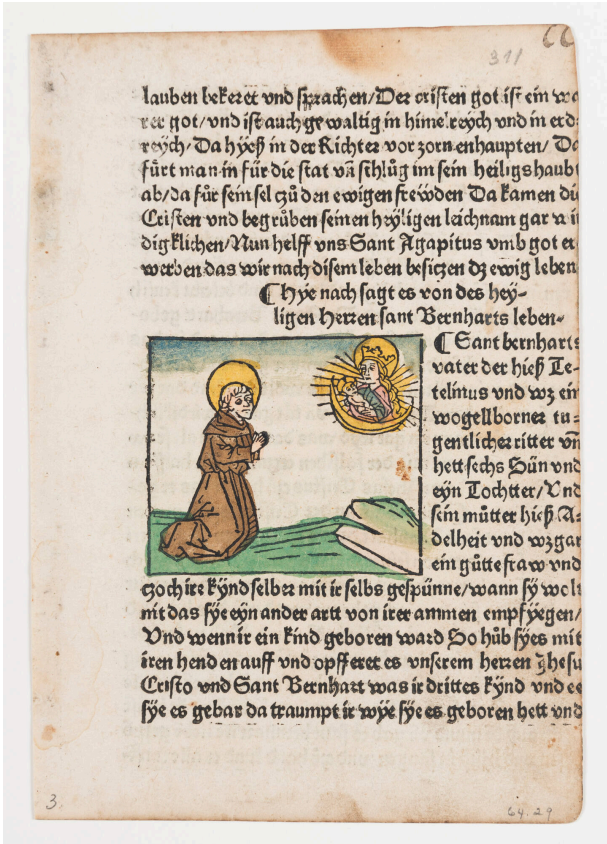 311
lauben bekeret vnd sprachen/Der cristen got ist ein wa
rer got/vnd ist auch gewaltig in himelreych vnd in erd
reych/Da hyeß in der Richter vor zorn enhaupten/Da
fůrt man in für die stat vñ schlůg im sein heiligs haubt
ab/da fůr sein sel czů den ewigen frewden Da kamen die
Cristen vnd begrůben seinen heyligen leichnam gar
digklichen/Nun helff vns Sant Agapitus vmb got er
werben das wir nach disem leben besiczen dz ewig leben
¶ Hye nach sagt es von des hey-
ligen Herren sant Bernharts leben-
¶ Sant bernharts
vater der hieß Te-
telmus vnd wz ein
wogellborner tu-
gentlicher ritter vñ
hett sechs Sün vnd
eyn Tochtter/Vnd
sein můtter hieß A-
delheit vnd wz gar
ein gůtte fraw vnd
czoch ire kynd selber mit ir selbs gespünne/wann sy wolt
nit das sye eyn ander artt von irer ammen empfyegen/
Vnd wenn ir ein kind geboren ward So hůb syes mit
iren henden auff vnd opfferet es vnserem herren Jhesu
Cristo vnd Sant Bernhart was ir drittes kynd vnd ee
sye es gebar da traumpt ir wye sye es geboren hett vnd
3.
64.29